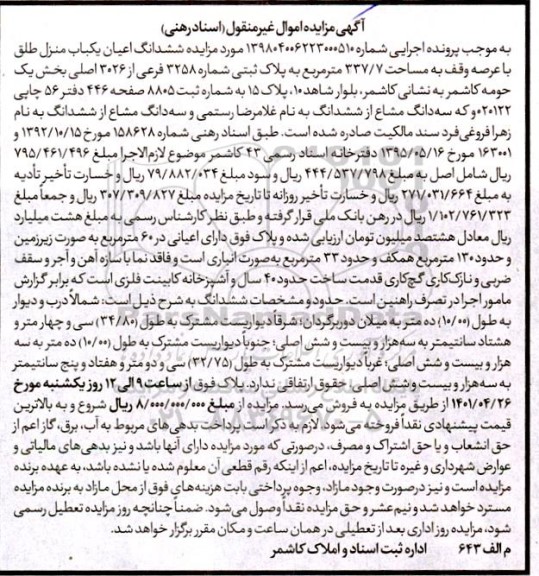 آگهی مزایده اموال غیرمنقول (اسناد رهنی)
به موجب پرونده اجرایی شماره ۱۳۹۸۰۴۰۰۶۲۲۳۰۰۰۵۱۰ مورد مزایده ششدانگ اعیان یکباب منزل طلق
با عرصه وقف به مساحت ۳۳۷/۷ مترمربع به پلاک ثبتی شماره ۳۲۵۸ فرعی از ۳۰۲۶ اصلی بخش یک
حومه کاشمر به نشانی کاشمر، بلوار شاهد ۱۰، پلاک ۱۵ به شماره ثبت ۸۸۰۵ صفحه ۴۴۶ دفتر ۵۶ چاپی
۰۲۰۱۲۲ و که سه‌دانگ مشاع از ششدانگ به نام غلامرضا رستمی و سه‌دانگ مشاع از ششدانگ به نام
زهرا فروغی‌فرد سند مالکیت صادره شده است. طبق اسناد رهنی شماره ۱۵۸۶۲۸ مورخ ۱۳۹۲/۱۰/۱۵ و
۱۶۳۰۰۱ مورخ ۱۳۹۵/۰۵/۱۶ دفترخانه اسناد رسمی ۴۳ کاشمر موضوع لازم‌الاجرا مبلغ ۷۹۵/۴۶۱/۴۹۶
ریال شامل اصل به مبلغ ۴۴۴/۵۳۷/۷۹۸ ریال و سود مبلغ ۷۹/۸۸۲/۰۳۴ ریال و خسارت تأخیر تأدیه
به مبلغ ۲۷۱/۰۳۱/۶۶۴ ریال و خسارت تأخیر روزانه تا تاریخ مزایده مبلغ ۳۰۷/۳۰۹/۸۲۷ ریال و جمعاً مبلغ
۱/۱۰۲/۷۶۱/۳۲۳ ریال در رهن بانک ملی قرار گرفته و طبق نظر کارشناس رسمی به مبلغ هشت میلیارد
ریال معادل هشتصد میلیون تومان ارزیابی شده و پلاک فوق دارای اعیانی در ۶۰ مترمربع به صورت زیرزمین
و حدود ۱۳۰ مترمربع همکف و حدود ۳۳ مترمربع به‌صورت انباری است و فاقد نما با سازه آهن و آجر و سقف
ضربی و نازک‌کاری گچ‌کاری قدمت ساخت حدود ۴۰ سال و آشپزخانه کابینت فلزی است که برابر گزارش
مامور اجرا در تصرف راهنین است. حدود و مشخصات ششدانگ به شرح ذیل است: شمالاً درب و دیوار
به طول (۱۰/۰۰) ده متر به میلان دوربرگردان؛ شرقاً دیواریست مشترک به طول (۳۴/۸۰) سی و چهار متر و
هشتاد سانتیمتر به سه‌هزار و بیست و شش اصلی؛ جنوباً دیواریست مشترک به طول (۱۰/۰۰) ده متر به سه
هزار و بیست و شش اصلی؛ غرباً دیواریست مشترک به طول (۳۲/۷۵) سی و دو متر و هفتاد و پنج سانتیمتر
به سه‌هزار و بیست و شش اصلی. حقوق ارتفاقی ندارد. پلاک فوق از ساعت ۹ الی ۱۲ روز یکشنبه مورخ
۱۴۰۱/۰۴/۲۶ از طریق مزایده به فروش می‌رسد. مزایده از مبلغ ۸/۰۰۰/۰۰۰/۰۰۰ ریال شروع و به بالاترین
قیمت پیشنهادی نقداً فروخته می‌شود. لازم به ذکر است پرداخت بدهی‌های مربوط به آب، برق، گاز اعم از
حق انشعاب و یا حق اشتراک و مصرف، درصورتی که مورد مزایده دارای آنها باشد و نیز بدهی‌های مالیاتی و
عوارض شهرداری و غیره تا تاریخ مزایده، اعم از اینکه رقم قطعی آن معلوم شده یا نشده باشد، به عهده برنده
مزایده است و نیز درصورت وجود مازاد، وجوه پرداختی بابت هزینه‌های فوق از محل مازاد به برنده مزایده
مسترد خواهد شد و نیم عشر و حق مزایده نقداً وصول می‌شود. ضمناً چنانچه روز مزایده تعطیل رسمی
شود، مزایده روز اداری بعد از تعطیلی در همان ساعت و مکان مقرر برگزار خواهد شد.
م الف ۶۴۳ اداره ثبت اسناد و املاک کاشمر